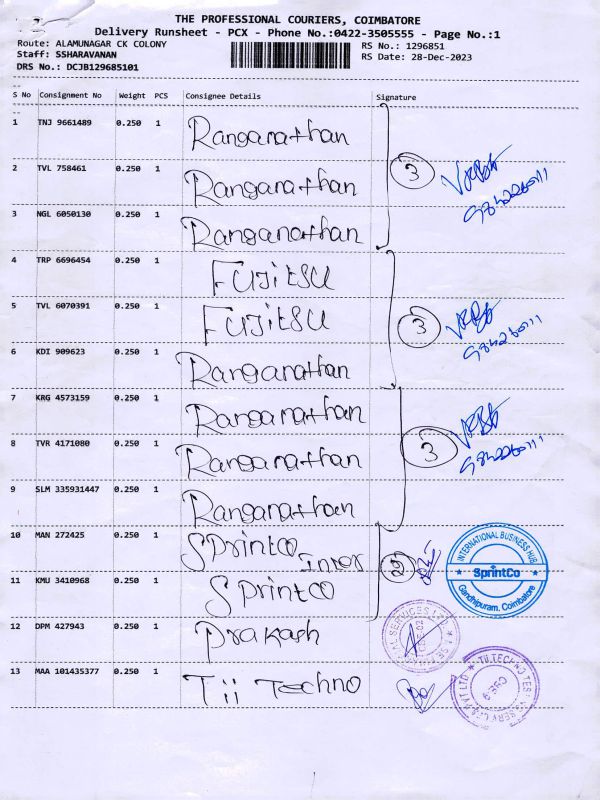 THE PROFESSIONAL COURIERS, COIMBATORE
Delivery Runsheet - PCX - Phone No.:0422-3505555 - Page No.:1
Route: ALAMUNAGAR CK COLONY RS No.: 1296851
Staff: SSHARAVANAN RS Date: 28-Dec-2023
DRS No.: DCJB129685101
S No Consignment No Weight PCS Consignee Details Signature
1 TNJ 9661489 0.250 1 Ranganathan
2 TVL 758461 0.250 1 Ranganathan 3
3 NGL 6050130 0.250 1 Ranganathan
4 TRP 6696454 0.250 1 Fujitsu
5 TVL 6070391 0.250 1 Fujitsu 3
6 KDI 909623 0.250 1 Ranganathan
7 KRG 4573159 0.250 1 Ranganathan
8 TVR 4171080 0.250 1 Ranganathan 3
9 SLM 335931447 0.250 1 Ranganathan
10 MAN 272425 0.250 1 Sprintco 2
INTERNATIONAL BUSINESS HUB
SprintCo
Gandhipuram, Coimbatore
11 KMU 3410968 0.250 1 Sprintco
12 DPM 427943 0.250 1 Prakash
13 MAA 101435377 0.250 1 Tii Techno